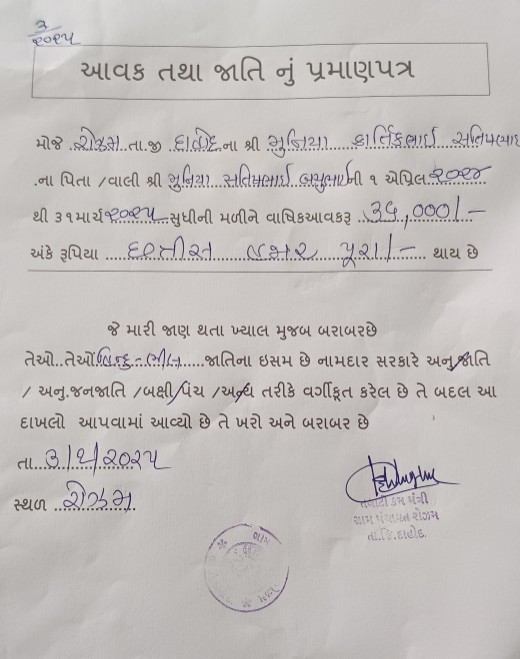 ૩
૨૦૨૫
આવક તથા જાતિ નું પ્રમાણપત્ર
મોજે ..રોઝમ.. તા.જી દાહોદ ના શ્રી મુનિયા કાર્તિકભાઈ
.ના પિતા /વાલી શ્રી મુનિયા બચુભાઈ ની ૧ એપ્રિલ ૨૦૨૪
થી ૩૧માર્ચ ૨૦૨૫ સુધીની મળીને વાષિકઆવકરૂ ..૩૬,૦૦૦/-
અંકે રૂપિયા ....છત્રીસ હજાર પૂરા/- .... થાય છે
જે મારી જાણ થતા ખ્યાલ મુજબ બરાબરછે
તેઓ...તેઓ હિન્દુ-ભીલ ......જાતિના ઇસમ છે નામદાર સરકારે અનુ.જાતિ
/ અનુ.જનજાતિ /બક્ષી પંચ /અન્ય તરીકે વર્ગીકૃત કરેલ છે તે બદલ આ
દાખલો આપવામાં આવ્યો છે તે ખરો અને બરાબર છે
તા...૩/૧/૨૦૨૫
સ્થળ રોઝમ
તલાટી કમ મંત્રી
ગ્રામ પંચાયત રોઝમ
તા.જિ.દાહોદ